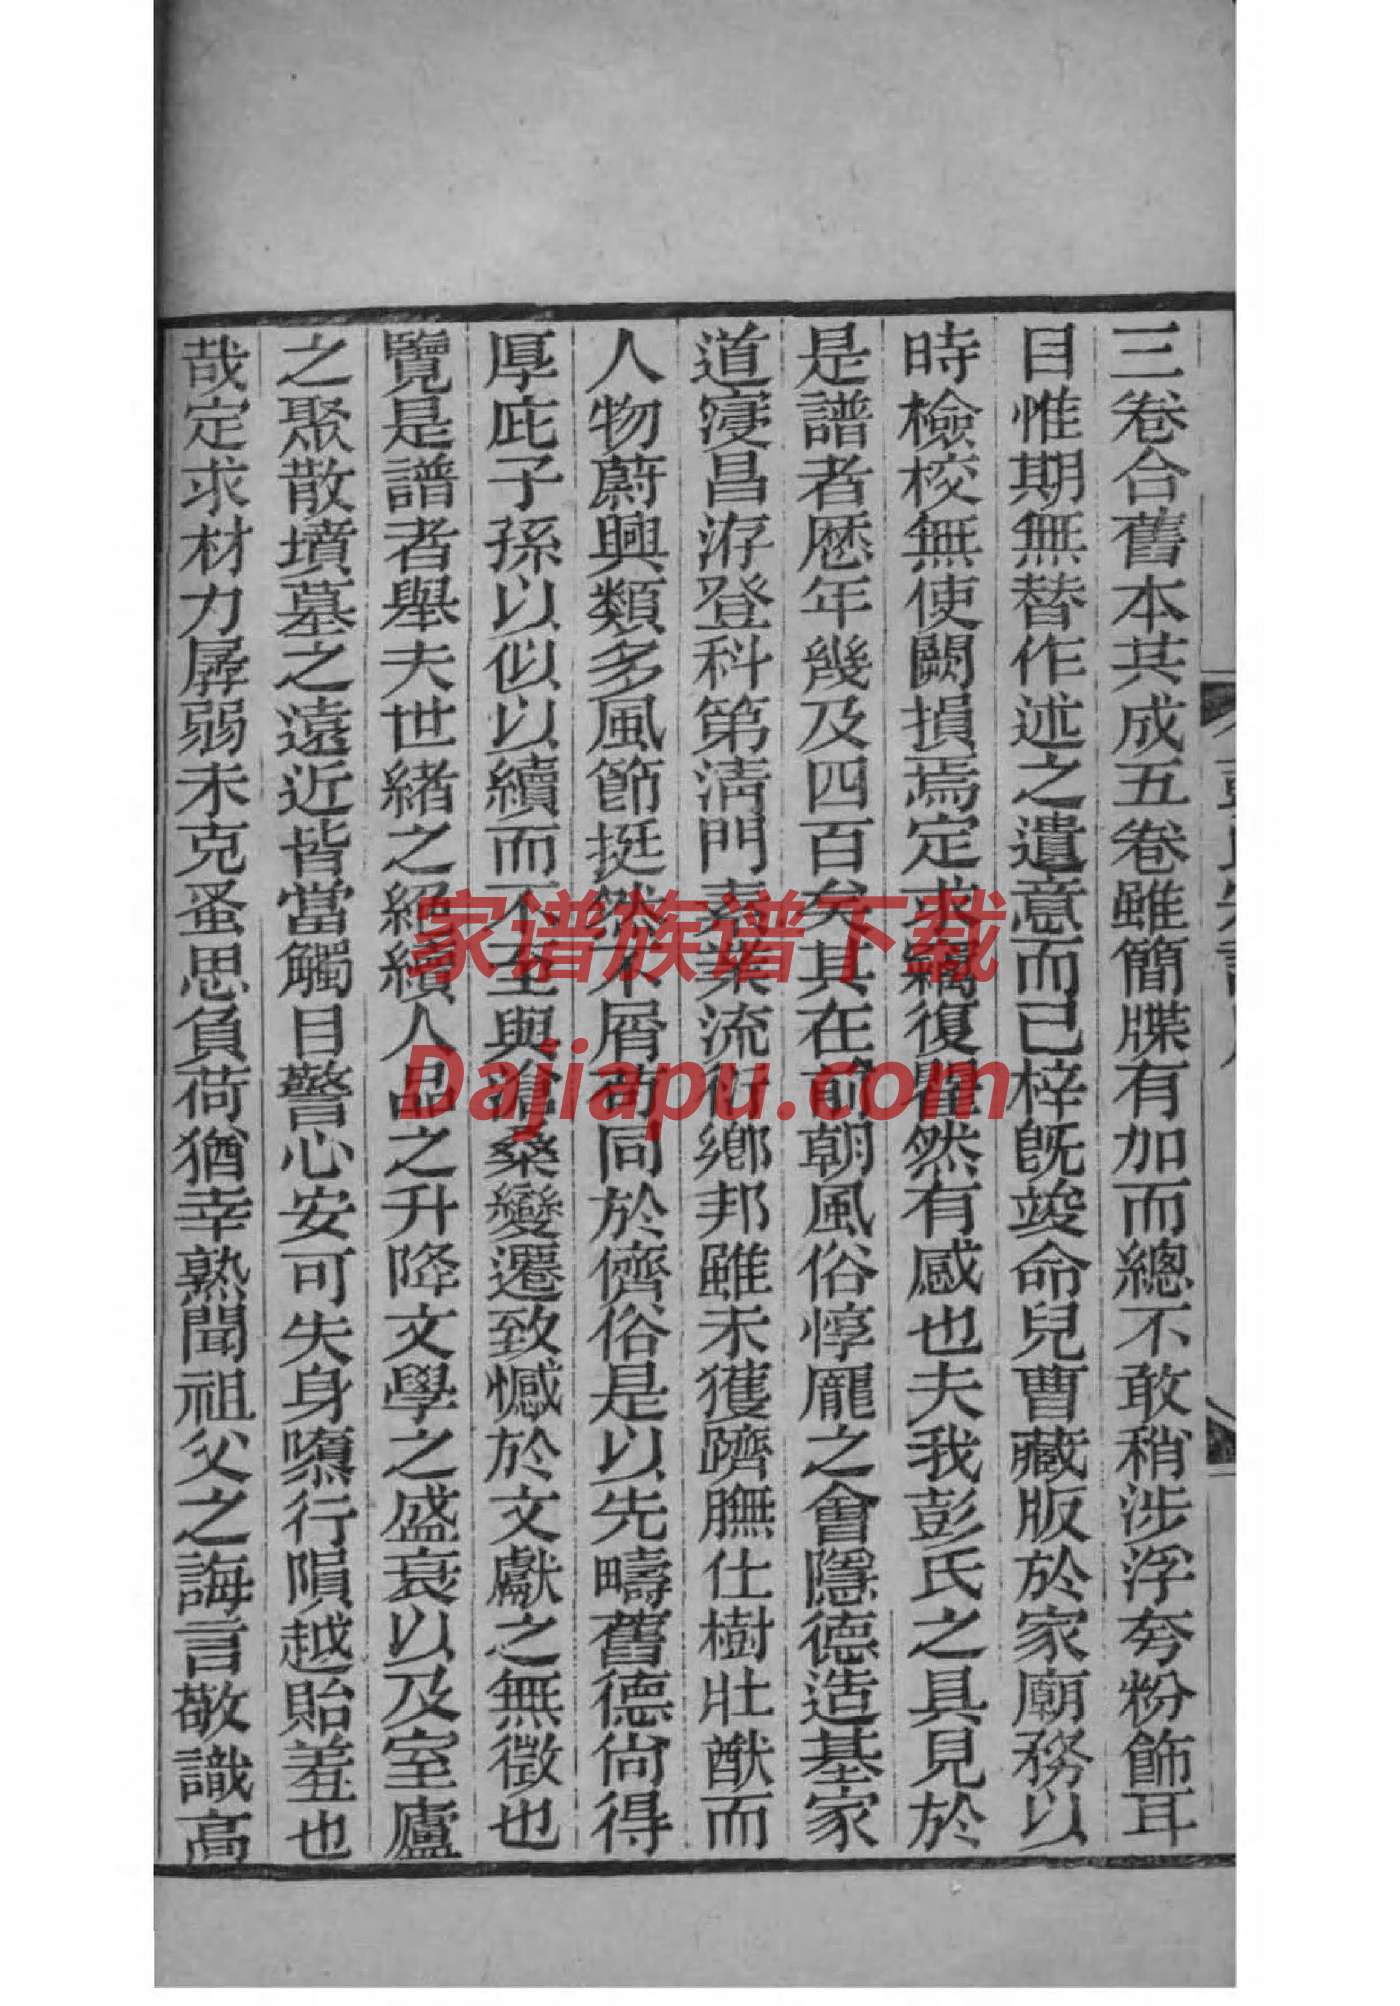 三卷合舊本其成五卷雖簡牒有加而總不敢稍涉浮夸粉飾耳
目惟期無替作述之遺意而已梓旣竣命兒曹藏版於家廟務以
時檢校無使闕損焉定求竊復瞿然有感也夫我彭氏之具見於
是譜者歷年幾及四百矣其在前朝風俗惇龎之會隱德造基家
道寖昌洊登科第淸門素業流衍鄉邦雖未獲躋膴仕樹壯猷而
人物蔚興類多風節挺然不屑苟同於儕俗是以先疇舊德尙得
厚庇子孫以似以續而不至與滄桑變遷致憾於文獻之無徵也
覽是譜者舉夫世緒之絕續人品之升降文學之盛衰以及室廬
之聚散墳墓之遠近皆當觸目警心安可失身隳行隕越貽羞也
哉定求材力孱弱未克蚤思負荷猶幸熟聞祖父之誨言敬識高
家谱族谱下载
Dajiapu.com